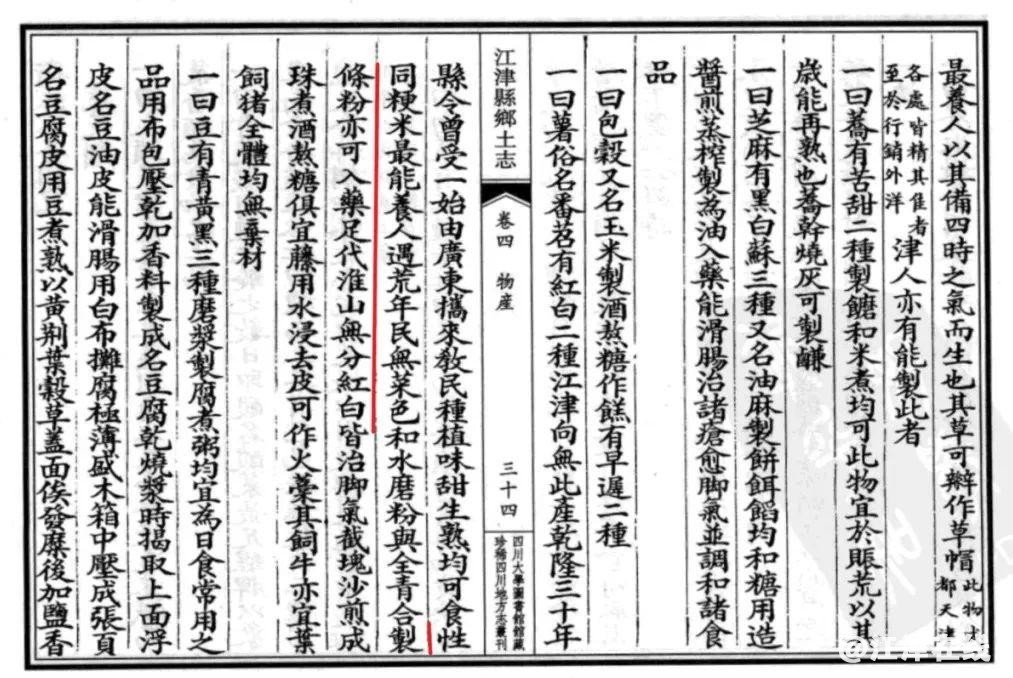 最養人以其備四時之氣而生也其草可辮作草帽此物才都天津
各處皆精其隹者至於行銷外洋津人亦有能製此者
一曰蕎有苦甜二種製饝和米煮均可此物宜於賑荒以其
歳能再熟也蕎幹燒灰可製鹻
一曰芝麻有黑白蘇三種又名油麻製餅餌餡均和糖用造
醬煎蒸榨製為油入藥能滑腸治諸瘡愈脚氣並調和諸食
品
一曰包穀又名玉米製酒熬糖作餻有早遲二種
一曰薯俗名番苕有紅白二種江津向無此產乾隆三十年
江津縣鄉土志 卷四 物産 三十四
四川大學圖書館館藏
珍稀四川地方志叢刊
縣令曾受一始由廣東攜來敎民種植味甜生熟均可食性
同粳米最能養人遇荒年民無菜色和水磨粉與全青合製
條粉亦可入藥足代淮山無分紅白皆治脚氣截塊沙煎成
珠煮酒熬糖俱宜藤用水浸去皮可作火藁其飼牛亦宜葉
飼猪全體均無棄材
一曰豆有青黃黑三種磨漿製腐煮粥均宜為日食常用之
品用布包壓乾加香料製成名豆腐乾燒漿時揭取上面浮
皮名豆油皮能滑腸用白布攤腐極薄盛木箱中壓成張頁
名豆腐皮用豆煮熟以黃荆葉穀草蓋面俟發糜後加鹽香
@江津在线